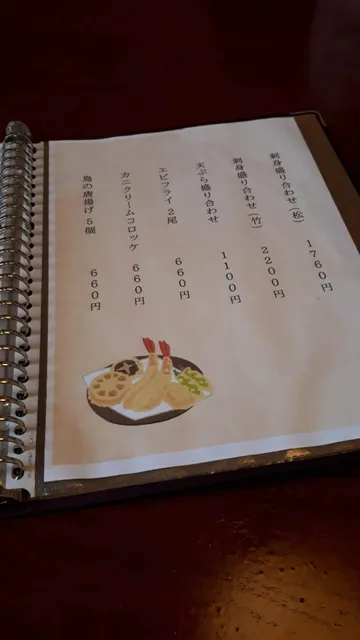 刺身盛り合わせ（松） 1760円
刺身盛り合わせ（竹） 2200円
天ぷら盛り合わせ 1100円
エビフライ 2尾 660円
カニクリームコロッケ 660円
鳥の唐揚げ 5個 660円